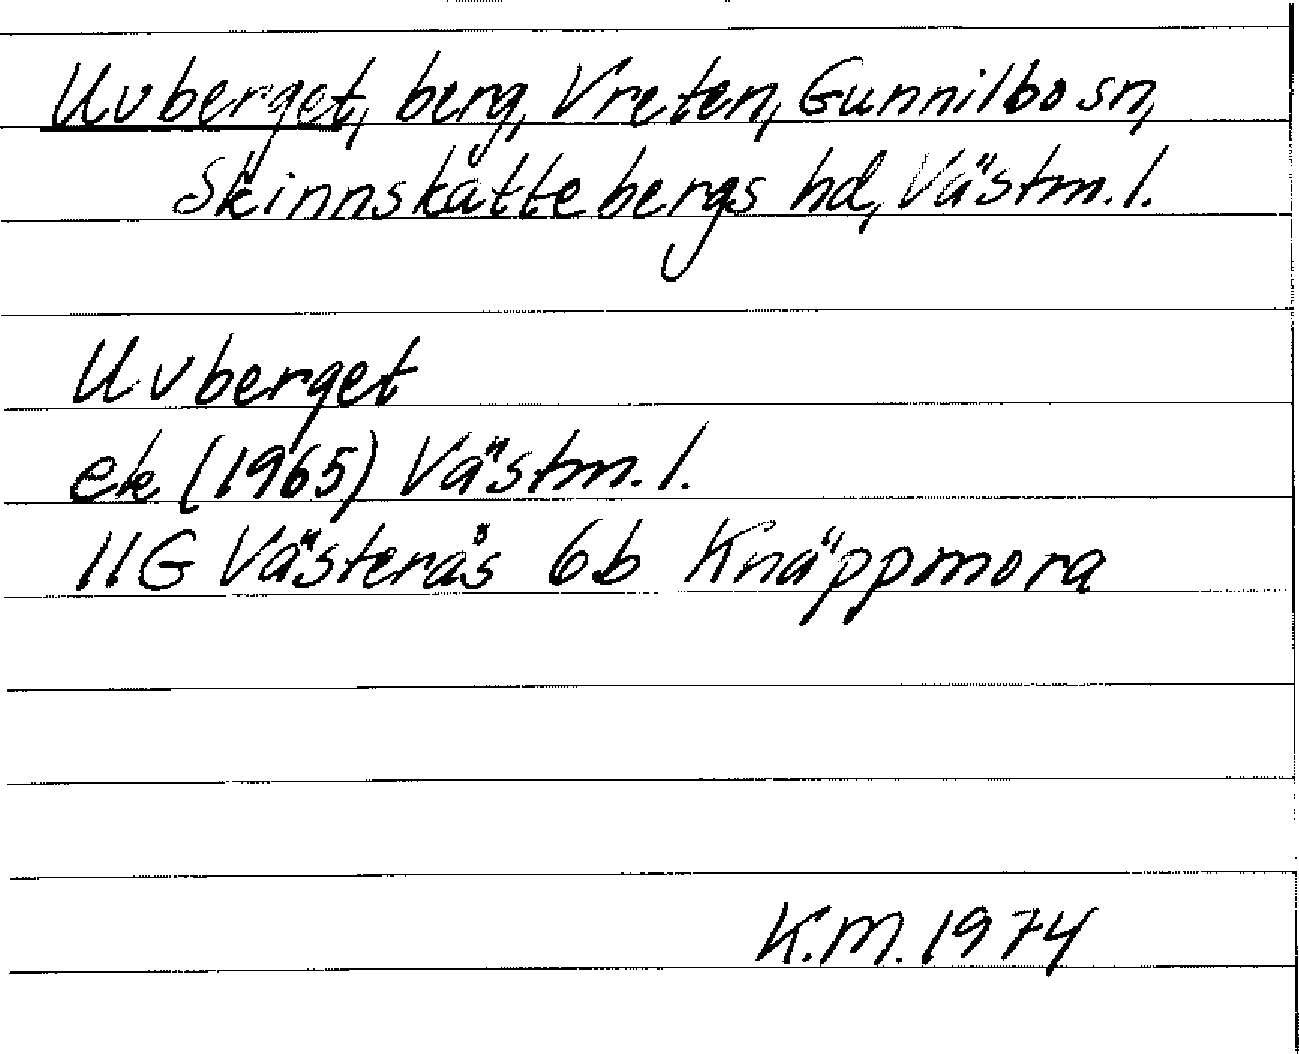 Uvberget, berg, Vreten, Gunnilbo sn,
Skinnskattebergs hd, Västm. l.
Uvberget
ek (1965) Västm. l.
11G Västerås 6b Knäppmora
K.M. 1974